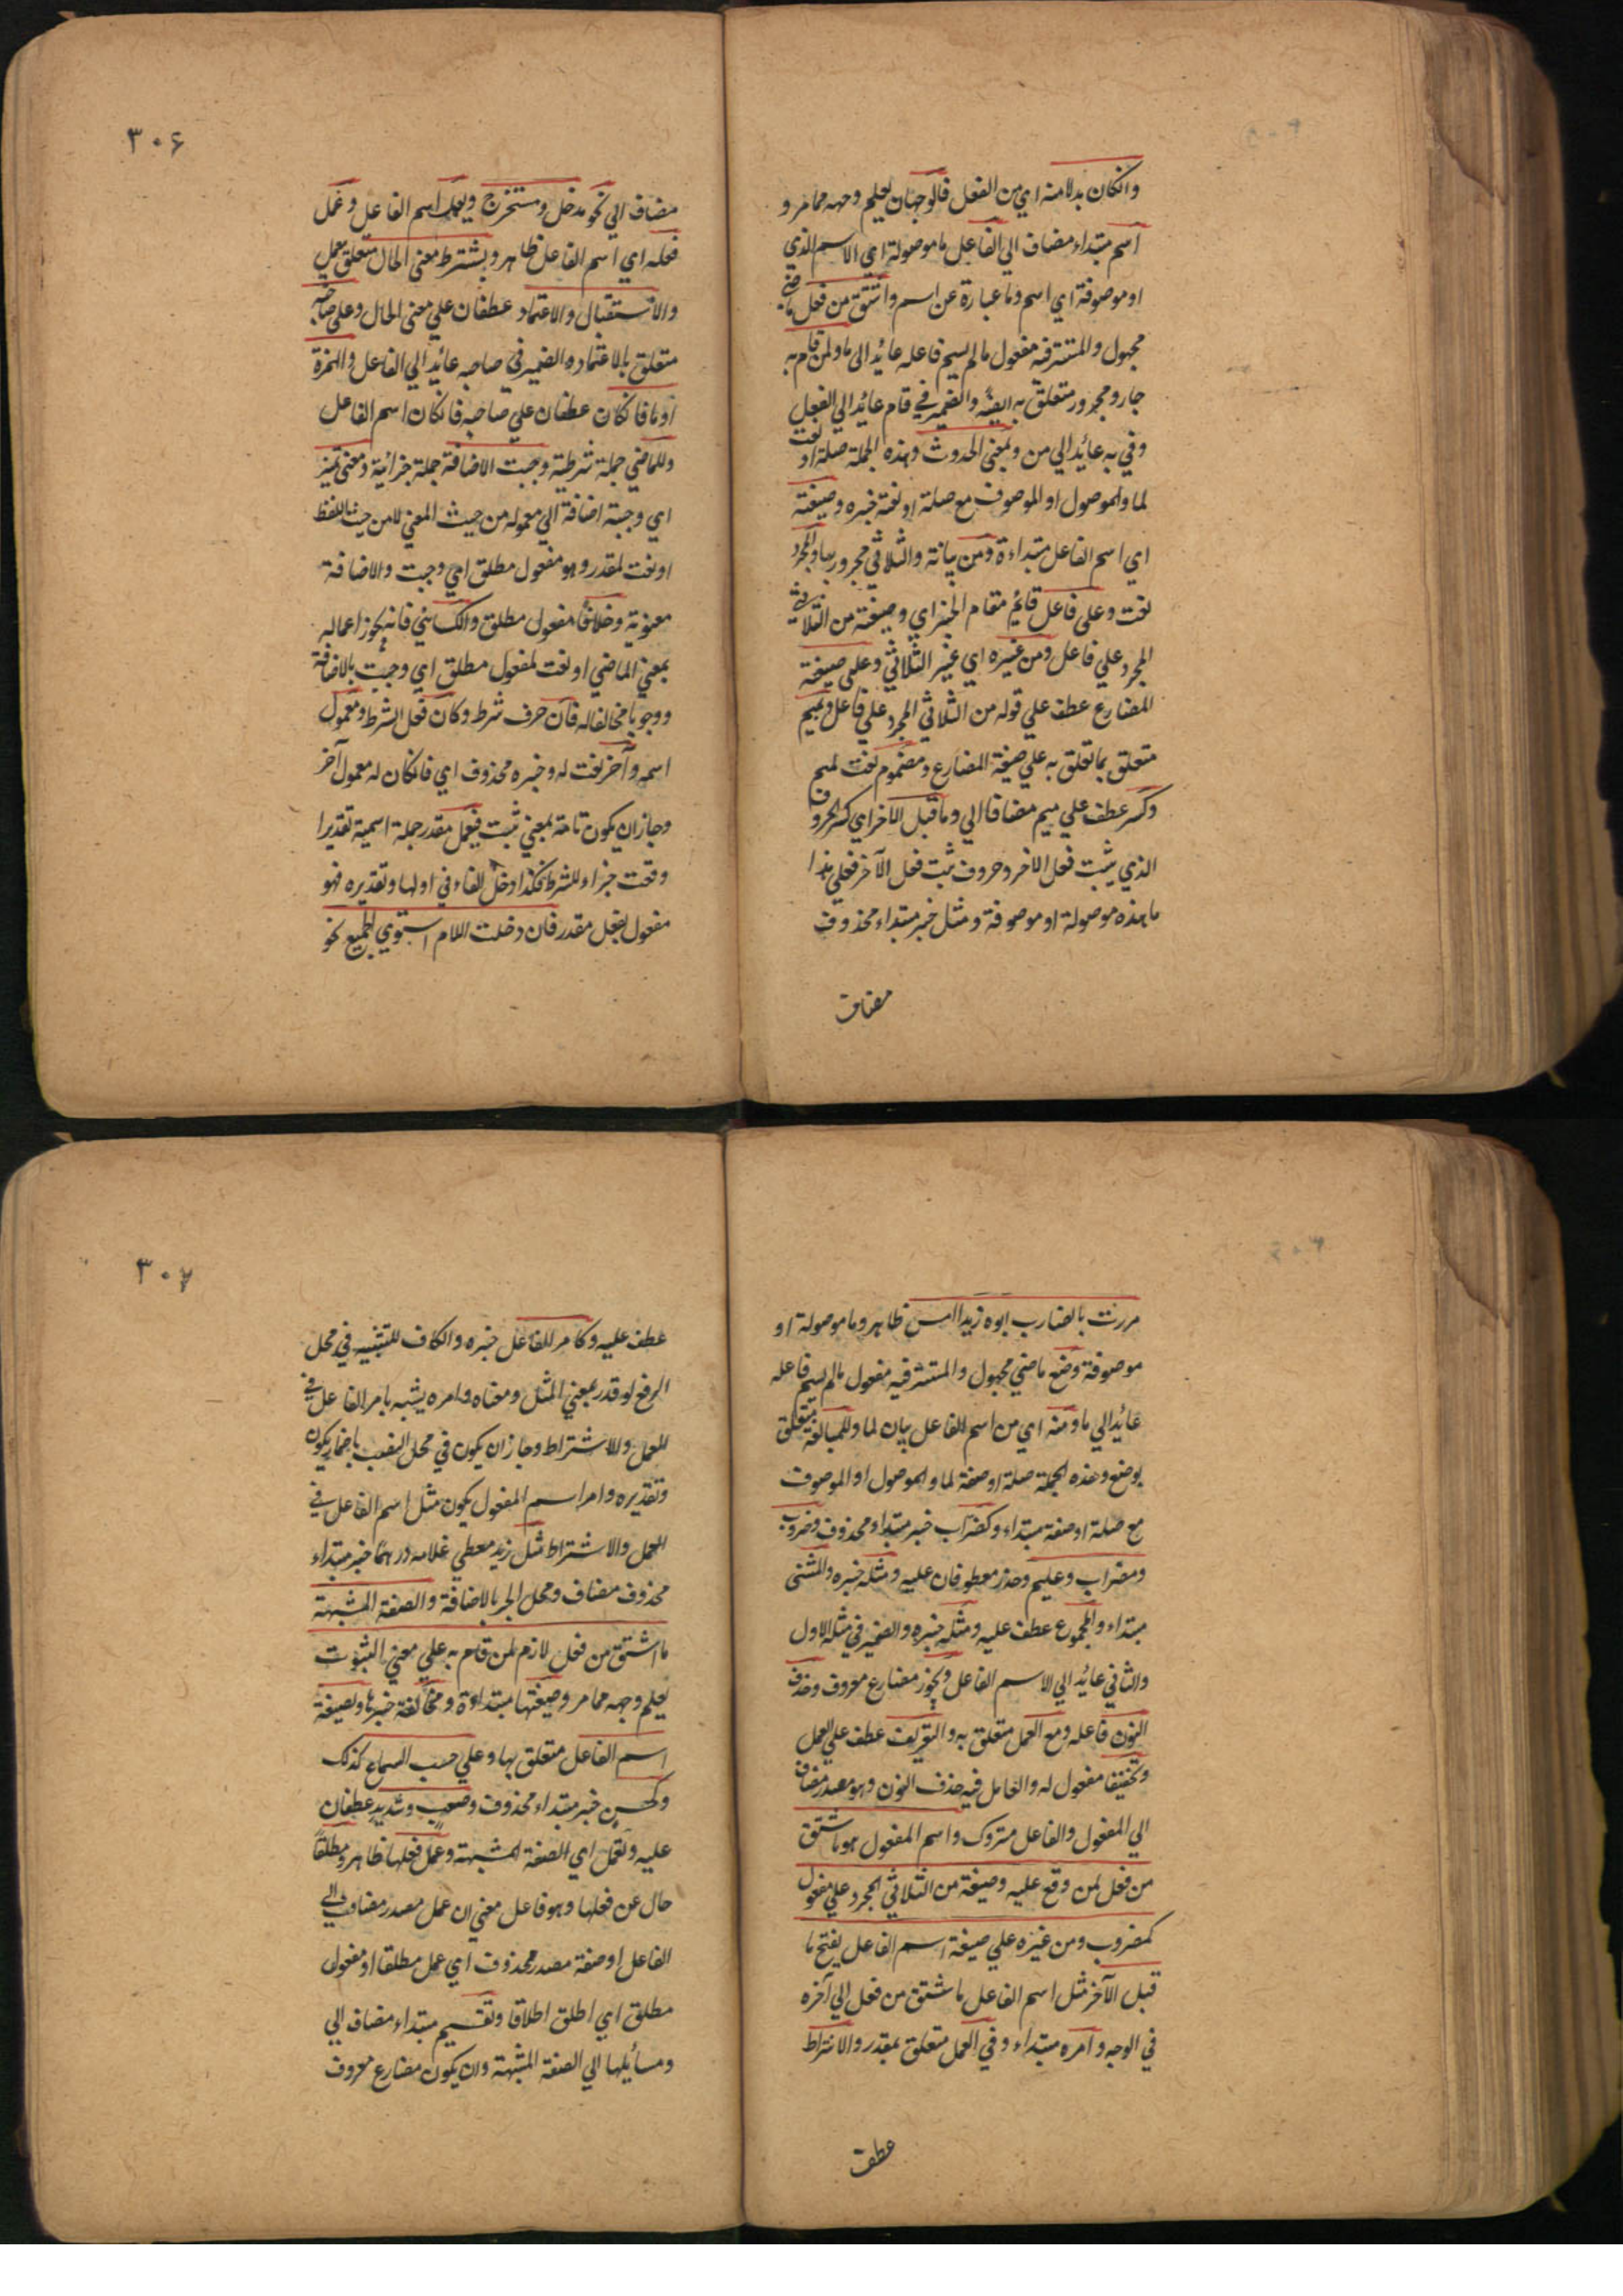 وانكان بدلا منه اي من الفعل فالوجهان يعلم وجهه مما مر و
اسم مبتداء مضاف الي الفاعل ما موصولة اي الاسم الذي
او موصوفة اي اسم وما عبارة عن اسم واشتق من فعل ماضي
مجهول والمستتر فيه مفعول ما لم يسم فاعله عائد الى ما ولمن قام به
جار ومجرور متعلق به ايضه والضمير في قام عائد الي الفعل
وفي به عائد الي من وبمعنى الحدوث وهذه الجملة صلة او نعت
لما والموصول او الموصوف مع صلة او نعته خبره وصيغته
اي اسم الفاعل مبتداءة ومن بيانة والثلاثي مجرور بها والمجرد
نعت وعلى فاعل قائم مقام الخبر اي وصيغته من الثلاثي
المجرد علي فاعل ومن غيره اي غير الثلاثي وعلى صيغة
المضارع عطف علي قوله من الثلاثي المجرد علي فاعل وبميم
متعلق بما تعلق به علي صيغة المضارع ومضموم نعت لميم
وكسر عطف علي ميم مضافا الي وما قبل الآخر اي كسر الحروف
الذي يثبت فعل الاخر وحروف ثبت فعل الآخر فعلي هذا
ما هذه موصولة او موصوفة ومثل خبر مبتداء محذوف
مضاف
٣٠٦
مضاف الي نحو مدخل ومستخرج ويعمل اسم الفاعل وعمل
فعله اي اسم الفاعل ظاهر وبشترط معنى الحال متعلق بعمل
والاستقبال والاعتماد عطفان علي معنى الحال وعلى صاحبه
متعلق بالاعتماد والضمير في صاحبه عائد الي الفاعل والهمزة
او ما فانكان عطفان علي صاحبه فانكان اسم الفاعل
وللماضي جملة شرطية وجبت الاضافة جملة جزائية ومعنى تميز
اي وجبة اضافة الي معموله من حيث المعني لا من حيث اللفظ
او نعت لمقدر وهو مفعول مطلق اي وجبت والاضافة
معنوية وخلافا مفعول مطلق والكسائي فانه يجوز اعماله
بمعني الماضي او نعت لمفعول مطلق اي وجبت بالاضافة
ووجوبا مخالفا له فان حرف شرط وكان فعل الشرط ومعمول
اسمه وآخر نعت له وخبره محذوف اي فانكان له معمول آخر
وجاز ان يكون تامة بمعني ثبت فيعمل مقدر جملة اسمية تقديرا
وقعت جزاء للشرط فكذا دخل الفاء في اولها وتقديره فهو
مفعول بفعل مقدر فان دخلت اللام استوي الجميع نحو
مررت بالضارب ابوه زيدا امس ظاهر وما موصولة او
موصوفة وضع ماضي مجهول والمستتر فيه مفعول ما لم يسم فاعله
عائد الي ما ومنه اي من اسم الفاعل بيان لما وللمبالغة متعلق
بوضع وهذه الجملة صلة او صفة لما والموصول او الموصوف
مع صلة او صفة مبتداء وكضراب خبر مبتداء محذوف وضروب
ومضراب وعليم وحذر معطوفان عليه ومثله خبره والمثنى
مبتداء والمجموع عطف عليه ومثله خبره والضمير في مثله الاول
والثاني عائد الي الاسم الفاعل ويجوز مضارع معروف وحذف
النون فاعله ومع العمل متعلق به والتعريف عطف علي العمل
وتخفيفا مفعول له والعامل فيه حذف النون وهو مصدر مضاف
الي المفعول والفاعل متروك واسم المفعول هو ما اشتق
من فعل لمن وقع عليه وصيغة من الثلاثي المجرد علي مفعول
كمضروب ومن غيره علي صيغة اسم الفاعل بفتح ما
قبل الآخر مثل اسم الفاعل ما شتق من فعل الي آخره
في الوجه وامره مبتداء وفي العمل متعلق بمقدر والاشتراط
عطف
٣٠٧
عطف عليه وكامر للفاعل خبره والكاف للتشبيه في محل
الرفع لو قدر بمعني المثل ومعناه وامره يشبه بامر الفاعل في
العمل وللاشتراط وجاز ان يكون في محل النصب باضمار يكون
وتقديره وامر اسم المفعول يكون مثل اسم الفاعل في
العمل والاشتراط مثل زيد معطي غلامه درهما خبر مبتداء
محذوف مضاف ومحل الجر بالاضافة والصفة المشبهة
ما اشتق من فعل لازم لمن قام به علي معني الثبوت
يعلم وجهه مما مر وصيغتها مبتداءة ومخالفة خبرها وبصيغة
اسم الفاعل متعلق بها وعلي حسب السماع كذلك
وكحسن خبر مبتداء محذوف وصعب وشديد عطفان
عليه وتعمل اي الصفة المشبهة وعمل فعلها ظاهر ومطلقاً
حال عن فعلها وهو فاعل معني ان عمل مصدر مضاف الي
الفاعل او صفة مصدر محذوف اي عمل مطلقا او مفعول
مطلق اي اطلق اطلاقا وتقسيم مبتداء مضاف الي
ومسائيلها الي الصفة المشبهة وان يكون مضارع معروف